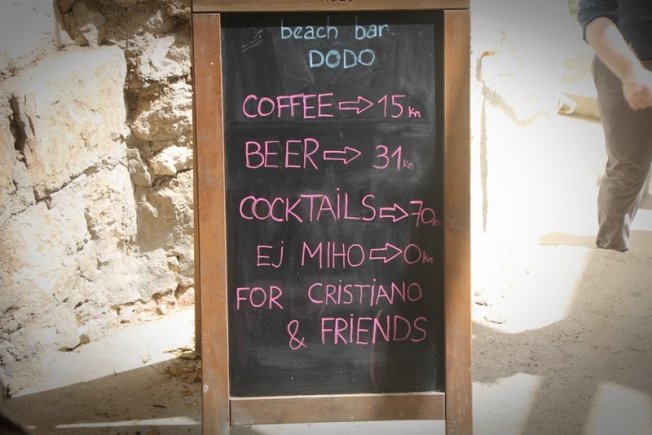 beach bar
DODO
COFFEE ⇨ 15 kn
BEER ⇨ 31 kn
COCKTAILS ⇨ 70 kn
EJ MIHO ⇨ 0 kn
FOR CRISTIANO
& FRIENDS